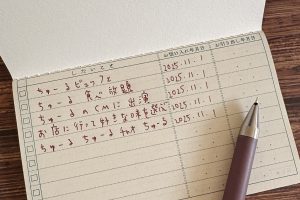 したいこと お問い入れ年月日 お引き出し年月日
ちゅ〜るビュッフェ 2025.11.1
ちゅ〜る 食べ放題 2025.11.1
ちゅ〜るのCMに出演 2025.11.1
お店に行って好きな味を選ぶ 2025.11.1
ちゅ〜る ちゅ〜る ちゅ〜る 2025.11.1